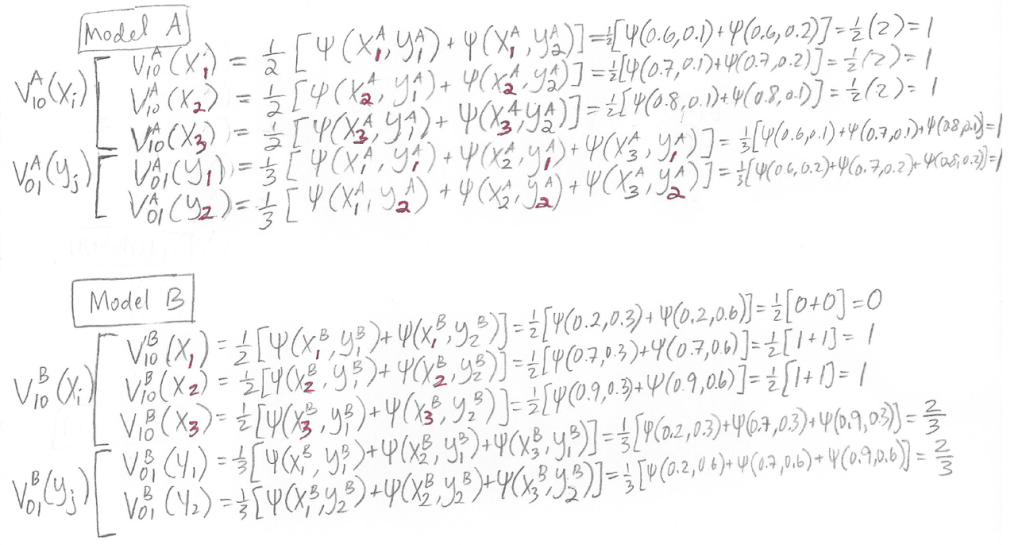 Model A
V₁₀ᴬ(Xᵢ) [ V₁₀ᴬ(X₁) = 1/2 [ψ(X₁ᴬ, Y₁ᴬ) + ψ(X₁ᴬ, Y₂ᴬ)] = 1/2[ψ(0.6,0.1)+ψ(0.6,0.2)] = 1/2(2) = 1
V₁₀ᴬ(X₂) = 1/2 [ψ(X₂ᴬ, Y₁ᴬ) + ψ(X₂ᴬ, Y₂ᴬ)] = 1/2[ψ(0.7,0.1)+ψ(0.7,0.2)] = 1/2(2) = 1
V₁₀ᴬ(X₃) = 1/2 [ψ(X₃ᴬ, Y₁ᴬ) + ψ(X₃ᴬ, Y₂ᴬ)] = 1/2[ψ(0.8,0.1)+ψ(0.8,0.1)] = 1/2(2) = 1
V₀₁ᴬ(Yⱼ) [ V₀₁ᴬ(Y₁) = 1/3 [ψ(X₁ᴬ, Y₁ᴬ) + ψ(X₂ᴬ, Y₁ᴬ) + ψ(X₃ᴬ, Y₁ᴬ)] = 1/3[ψ(0.6,0.1)+ψ(0.7,0.1)+ψ(0.8,0.1)] = 1
V₀₁ᴬ(Y₂) = 1/3 [ψ(X₁ᴬ, Y₂ᴬ) + ψ(X₂ᴬ, Y₂ᴬ) + ψ(X₃ᴬ, Y₂ᴬ)] = 1/3[ψ(0.6,0.2)+ψ(0.7,0.2)+ψ(0.8,0.2)] = 1
Model B
V₁₀ᴮ(Xᵢ) [ V₁₀ᴮ(X₁) = 1/2 [ψ(X₁ᴮ, Y₁ᴮ) + ψ(X₁ᴮ, Y₂ᴮ)] = 1/2[ψ(0.2,0.3)+ψ(0.2,0.6)] = 1/2[0+0] = 0
V₁₀ᴮ(X₂) = 1/2 [ψ(X₂ᴮ, Y₁ᴮ) + ψ(X₂ᴮ, Y₂ᴮ)] = 1/2[ψ(0.7,0.3)+ψ(0.7,0.6)] = 1/2[1+1] = 1
V₁₀ᴮ(X₃) = 1/2 [ψ(X₃ᴮ, Y₁ᴮ) + ψ(X₃ᴮ, Y₂ᴮ)] = 1/2[ψ(0.9,0.3)+ψ(0.9,0.6)] = 1/2[1+1] = 1
V₀₁ᴮ(Yⱼ) [ V₀₁ᴮ(Y₁) = 1/3 [ψ(X₁ᴮ, Y₁ᴮ) + ψ(X₂ᴮ, Y₁ᴮ) + ψ(X₃ᴮ, Y₁ᴮ)] = 1/3[ψ(0.2,0.3)+ψ(0.7,0.3)+ψ(0.9,0.3)] = 2/3
V₀₁ᴮ(Y₂) = 1/3 [ψ(X₁ᴮ, Y₂ᴮ) + ψ(X₂ᴮ, Y₂ᴮ) + ψ(X₃ᴮ, Y₂ᴮ)] = 1/3[ψ(0.2,0.6)+ψ(0.7,0.6)+ψ(0.9,0.6)] = 2/3